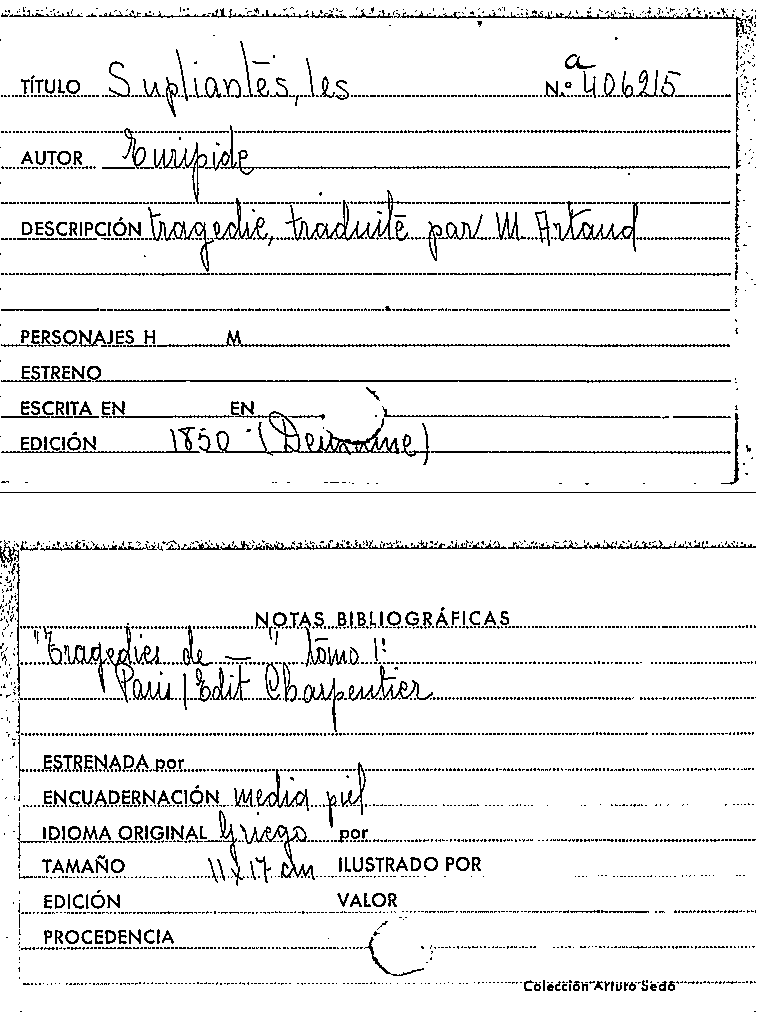 a
TÍTULO Supliantes, les N.º 406215
AUTOR Euripide
DESCRIPCIÓN tragedie, traduite par M Artaud
PERSONAJES H M
ESTRENO
ESCRITA EN EN
EDICIÓN 1850 (Deuxieme)
NOTAS BIBLIOGRÁFICAS
"Tragedies de — " tomo 1º
Paris / Edit Charpentier
ESTRENADA por
ENCUADERNACIÓN media piel
IDIOMA ORIGINAL Griego por
TAMAÑO 11 x 17 cm ILUSTRADO POR
EDICIÓN VALOR
PROCEDENCIA
Colección Arturo Sedó